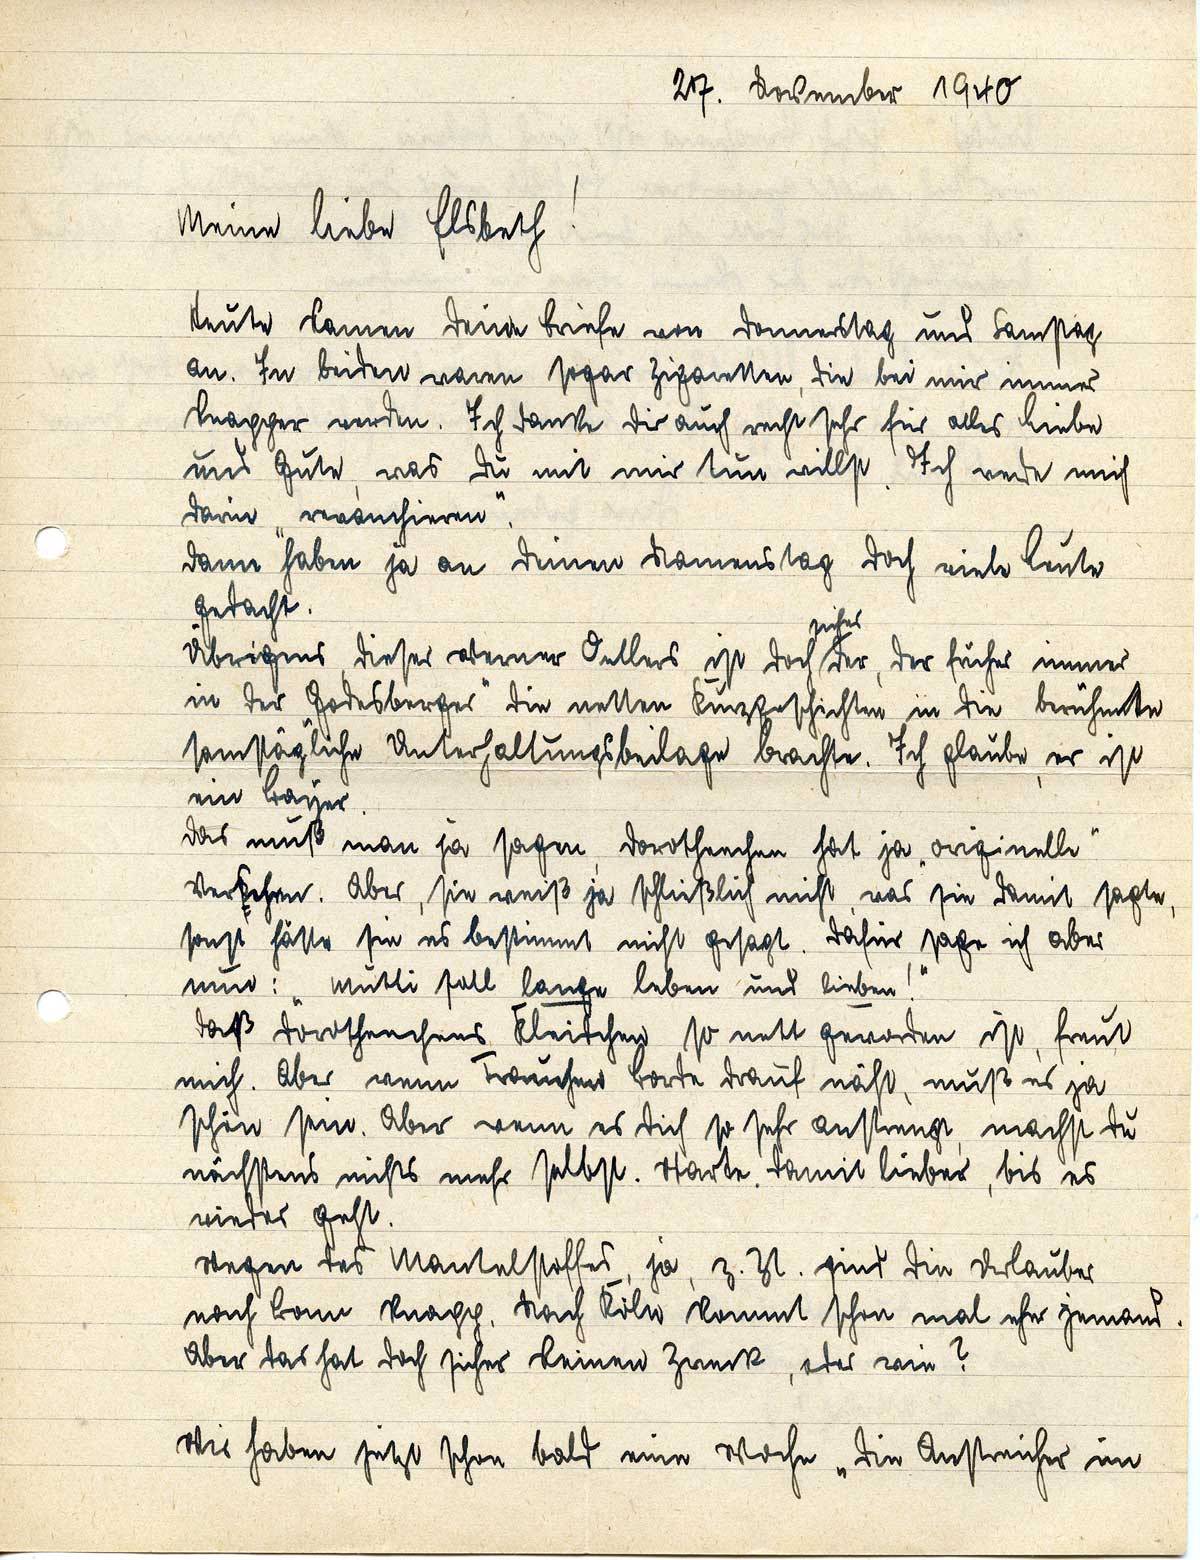 27. November 1940
Meine liebe Elsbeth!
Heute kamen deine Briefe von Donnerstag und Samstag
an. In beiden waren sogar Zigaretten, die bei mir immer
knapper werden. Ich danke dir auch recht sehr für alles Liebe
und Gute, was Du mit mir tun willst. Ich werde mich
darin „revanchieren".
Dann haben ja an deinen Namenstag doch viele Leute
gedacht.
Übrigens, dieser Werner Oellers ist doch sicher der, der früher immer
in der „Godesberger" die netten Kurzgeschichten in die berühmte
samstägliche Unterhaltungsbeilage brachte. Ich glaube, er ist
ein Bayer.
Das muß man ja sagen, Dorotheechen hat ja „originelle"
Verkehren. Aber, sie weiß ja schließlich nicht, was sie damit sagte,
sonst hätte sie es bestimmt nicht gesagt. Dafür sage ich aber
nun: „Mutti soll lange leben und lieben!"
Daß Dorotheechens Kleidchen so nett geworden ist, freut
mich. Aber wenn Frauchen Borde drauf näht, muß es ja
schön sein. Aber wenn es dich so sehr anstrengt, machst du
nächstens nichts mehr selbst. Warte damit lieber, bis es
wieder geht.
Wegen des Mantelstoffes, ja, z. Zt. sind die Urlauber
nach Bonn knapp. Nach Köln kommt schon mal eher jemand.
Aber das hat doch sicher keinen Zweck, oder wie?
Wir haben jetzt schon bald eine Woche „die Anstreicher im